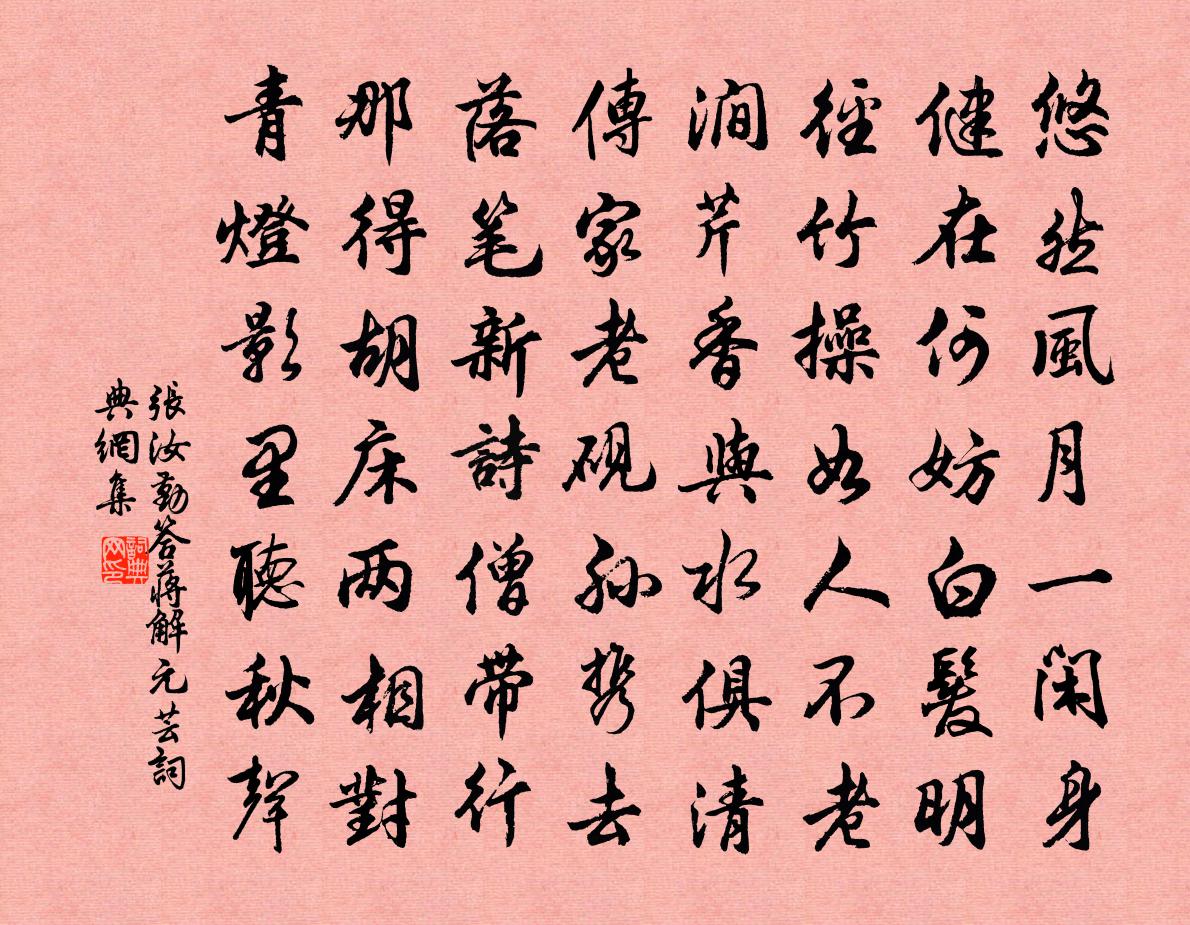 悠然風月一閑身
健在何妨白髮明
徑竹操如人不老
澗芹香與水俱清
傳家老硯孫携去
落筆新詩僧帶行
那得胡床两相對
青燈影里聽秋聲
張汝勤答蔣解元芸詞
典網集
詞典
网印